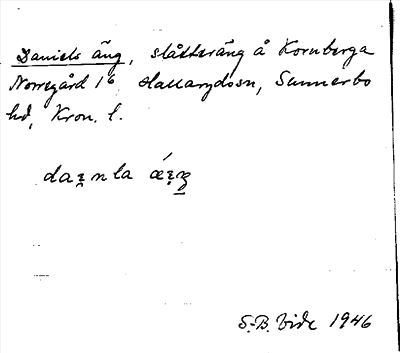 Daniels äng, slåtteräng å Kornberga
Norregård 1⁶ Hallarydssn, Sunnerbo
hd, Kron. l.
S.-B. Vide 1946